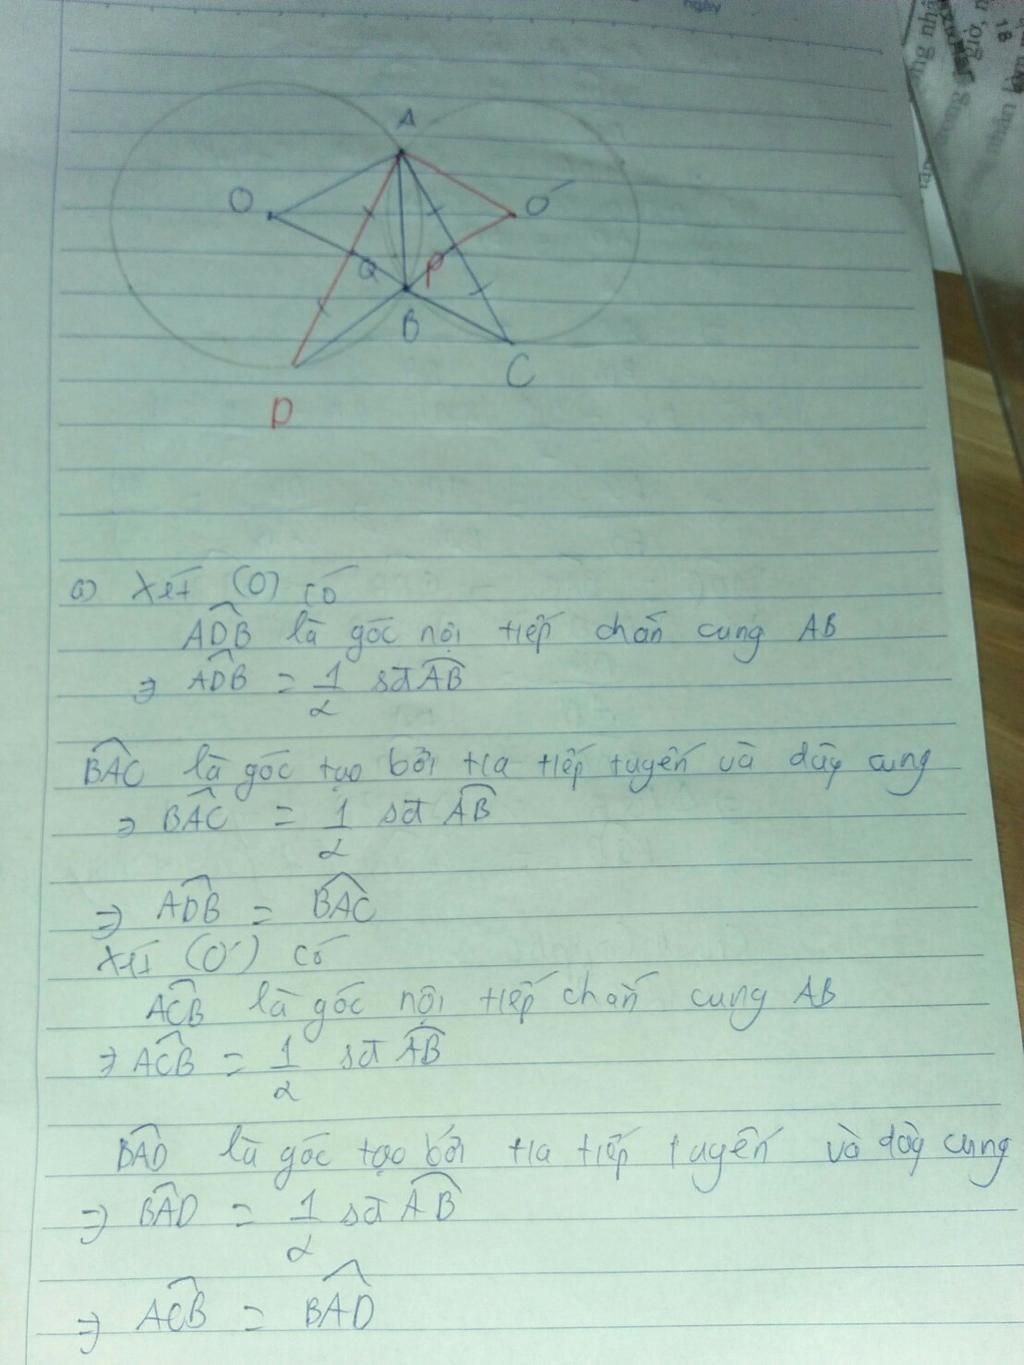 ngày
A
O
O'
Q
P
B
C
D
a) Xét (O) có
\widehat{ADB} là góc nội tiếp chắn cung AB
⇒ \widehat{ADB} = 1/2 sđ \widehat{AB}
\widehat{BAC} là góc tạo bởi tia tiếp tuyến và dây cung
⇒ \widehat{BAC} = 1/2 sđ \widehat{AB}
⇒ \widehat{ADB} = \widehat{BAC}
Xét (O') có
\widehat{ACB} là góc nội tiếp chắn cung AB
⇒ \widehat{ACB} = 1/2 sđ \widehat{AB}
\widehat{BAD} là góc tạo bởi tia tiếp tuyến và dây cung
⇒ \widehat{BAD} = 1/2 sđ \widehat{AB}
⇒ \widehat{ACB} = \widehat{BAD}